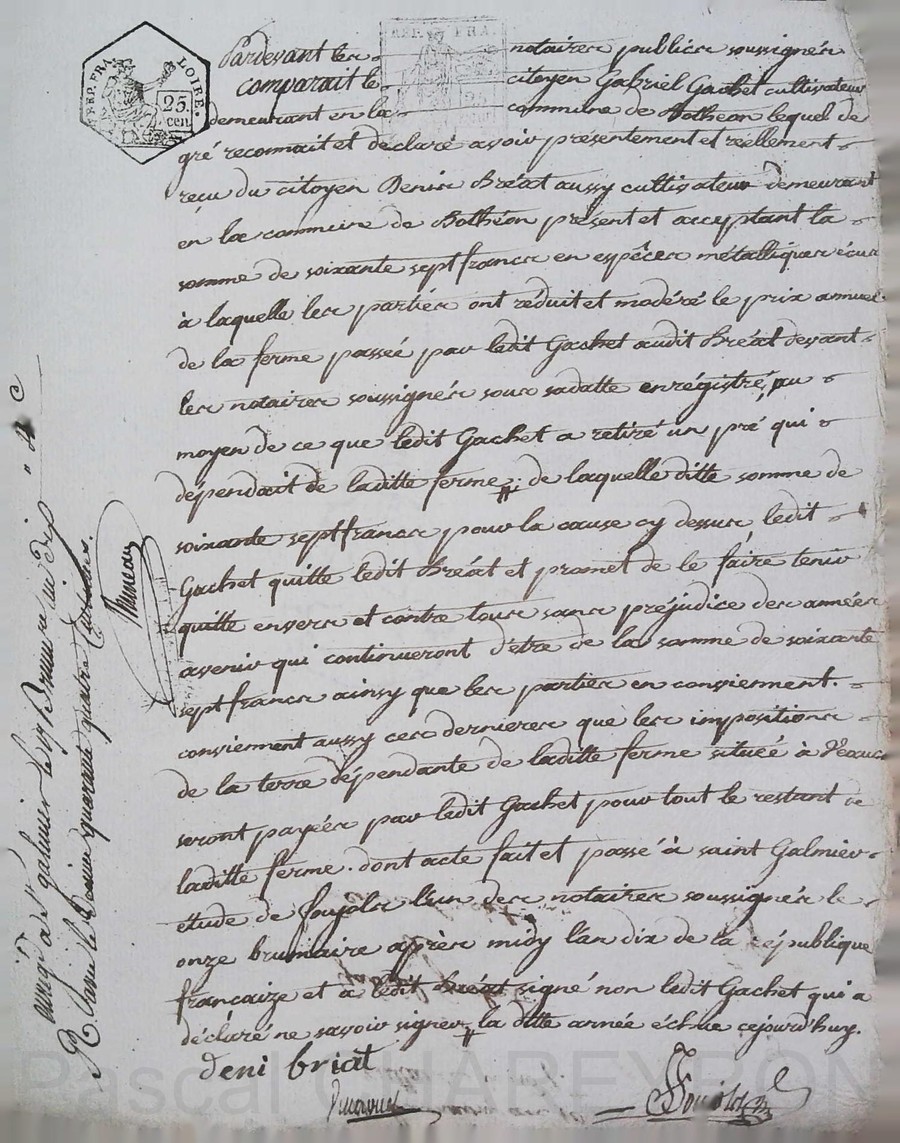 REP. FRA. LOIRE.
25. cen.
REP. FRA.
Pardevant les notaires publics soussignés
comparait le citoyen Gabriel Gachet cultivateur
demeurant en la commune de Bothéon lequel de
gré reconnait et déclaré avoir présentement et réellement
reçu du citoyen Denis Bréat aussy cultivateur demeurant
en la commune de Bothéon présent et acceptant la
somme de soixante sept francs en espêces métalliques écus
à laquelle les parties ont réduit et modéré le prix annuel
de la ferme passée par ledit Gachet audit Bréat devant
les notaires soussignés sous sa datte enrégistré, au
moyen de ce que ledit Gachet a retiré un pré qui
dépendait de laditte ferme ; de laquelle ditte somme de
soixante sept francs pour la cause cy dessus ledit
Gachet quitte ledit Bréat et promet de le faire tenir
quitte envers et contre tous sans préjudice des années
avenir qui continueront d'être de la somme de soixante
sept francs ainsy que les parties en convienment.
convienment aussy ces dernieres que les impositions
de la terre dépendante de laditte ferme située à
seront payées par ledit Gachet pour tout le restant de
laditte ferme. dont acte fait et passé à saint Galmier
étude de l'un des notaires soussignés le
onze brumaire après midy l'an dix de la république
françaize et a ledit Bréat signé non ledit Gachet qui a
déclaré ne savoir signer, la ditte année échue cejourd'huy.
deni briat
à St galmier le Brumaire an dix
quarante quatre Centimes.
Pascal CHAREYRON